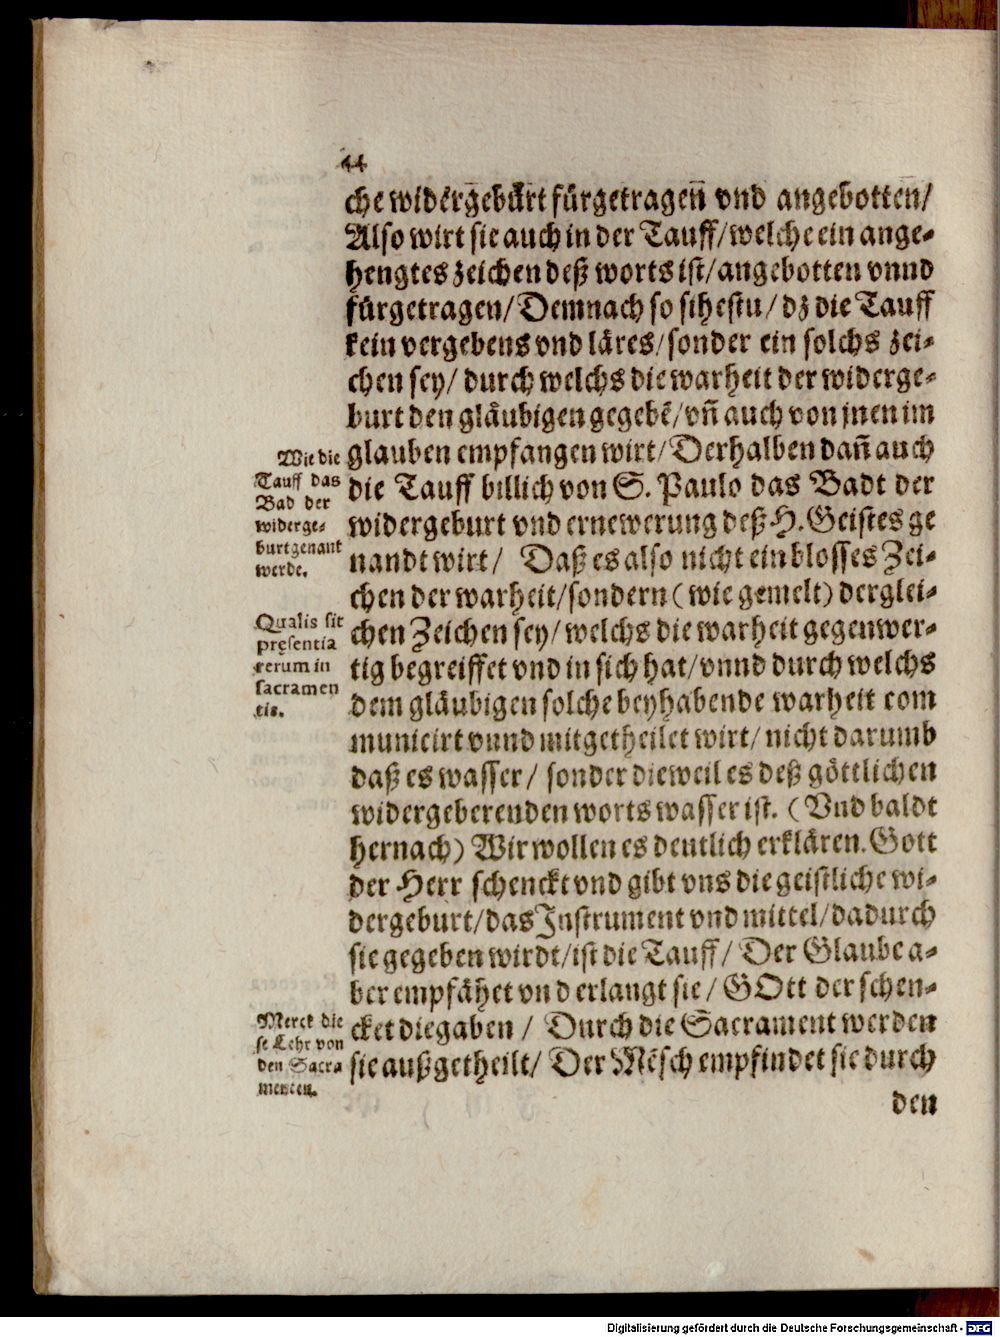 44
che widergeburt fürgetragenn vnd angebotten/
Also wirt sie auch in der Tauff/welche ein ange-
hengtes zeichen deß worts ist/angebotten vnnd
fürgetragen/Demnach so sihestu/dz die Tauff
kein vergebens vnd läres/sonder ein solchs zei-
chen sey/ durch welchs die warheit der widerge-
burt den gläubigen gegebē/vñ auch von jnen im
glauben empfangen wirt/Derhalben dañ auch
die Tauff billich von S. Paulo das Badt der
widergeburt vnd ernewerung deß H. Geistes ge
nandt wirt/ Daß es also nicht ein blosses Zei-
chen der warheit/sondern (wie gemelt) derglei-
chen Zeichen sey/welchs die warheit gegenwer-
tig begreiffet vnd in sich hat/vnnd durch welchs
dem gläubigen solche beyhabende warheit com
municirt vnnd mitgetheilet wirt/nicht darumb
daß es wasser/ sonder dieweil es deß göttlichen
widergeberenden worts wasser ist. (Vnd baldt
hernach) Wir wollen es deutlich erklären. Gott
der Herr schenckt vnd gibt vns die geistliche wi-
dergeburt/das Instrument vnd mittel/dadurch
sie gegeben wirdt/ist die Tauff/ Der Glaube a-
ber empfähet vnd erlangt sie/ GOtt der schen-
cket die gaben/ Durch die Sacrament werden
sie außgetheilt/ Der Mēsch empfindet sie durch
den
Wie die
Tauff das
Bad der
widerge-
burt genant
werde.
Qualis sit
præsentia
rerum in
sacramen
tis.
Merck die
se Lehr von
den Sacra
menten.
Digitalisierung gefördert durch die Deutsche Forschungsgemeinschaft - DFG